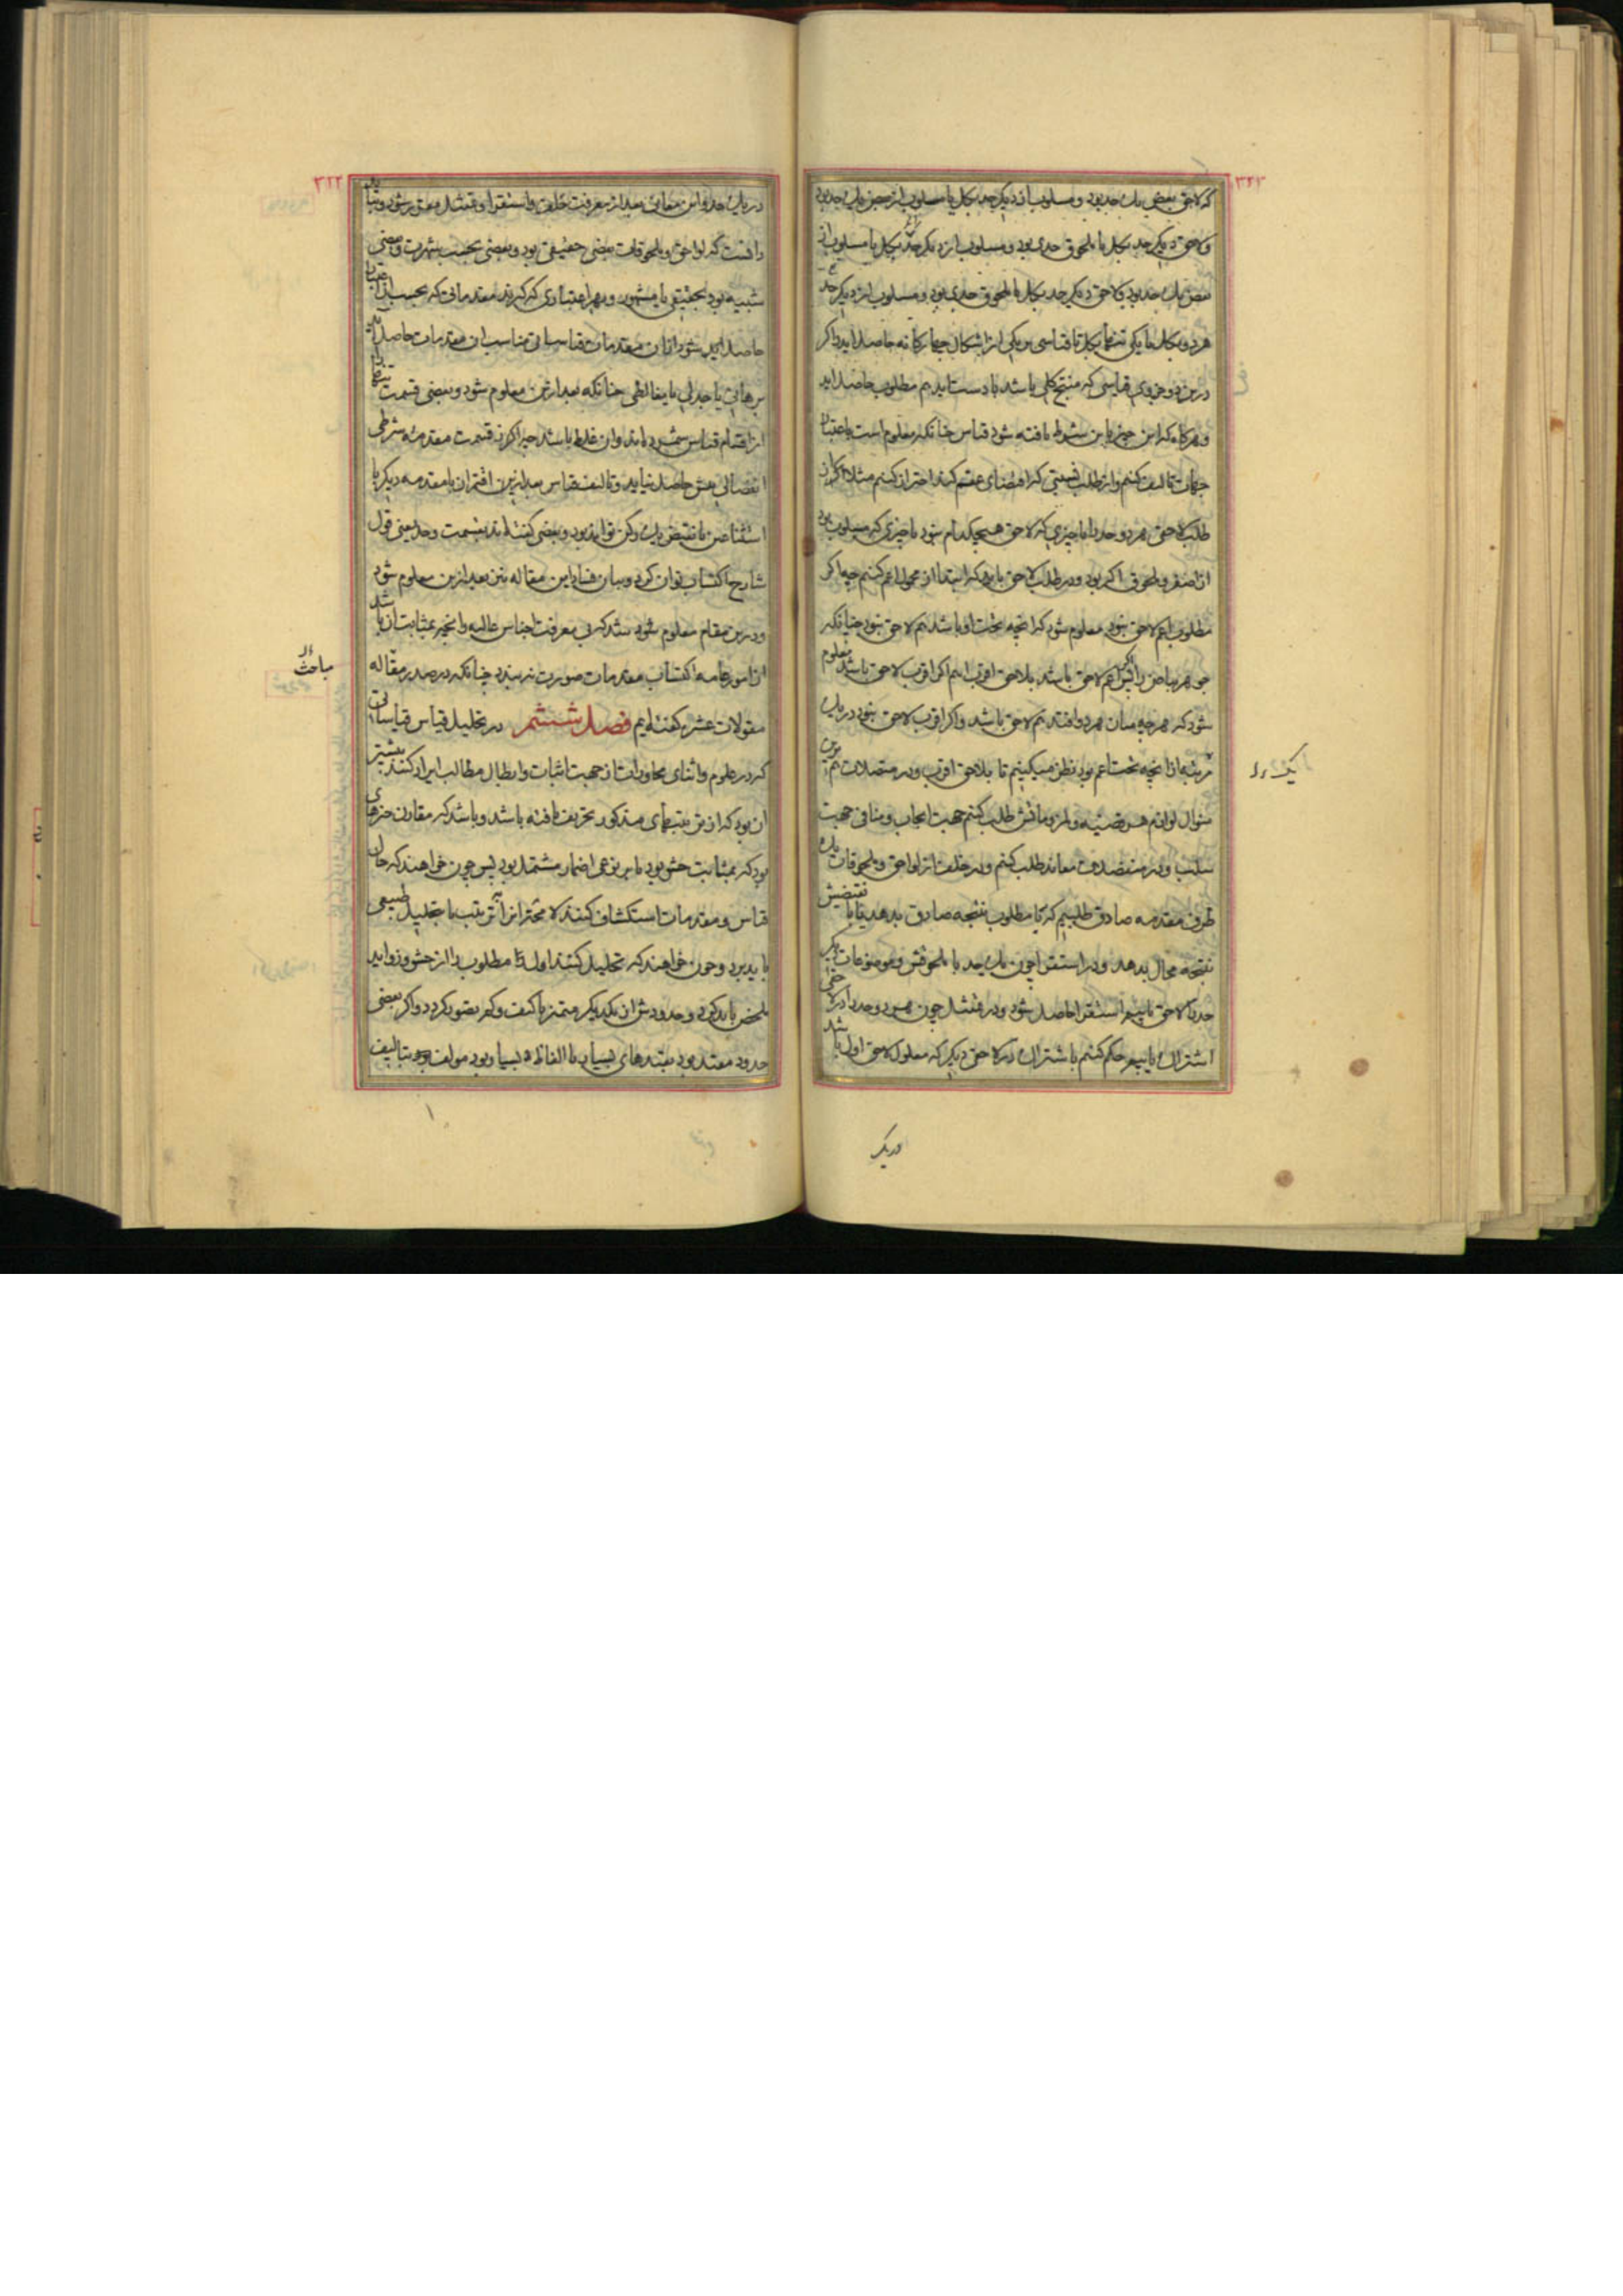 ۳۲۳
که لاحق بعضی یک حد بود و مسلوب از دیگر حد بکل یا مسلوب از بعض یک حد بود
و لاحق دیگر حد بکل یا ملحوق حدی بود و مسلوب از دیگر حد بکل یا مسلوب از
بعض یک حد بود و لاحق دیگر حد بکل یا ملحوق حدی بود و مسلوب از دیگر حد
هر دو بکل یا یکی تنها بکل تا قیاسی بر یکی از اشکال چهارگانه حاصل آید و اگر
درین دو جزوی قیاسی که منتج کلی باشد بادست آید هم مطلوب حاصل آید
و هرگاه که این چیز باین شرط یافته شود قیاس چنانکه معلوم است باعتبار
جهات تالیف کنیم و از طلب که اقتضای عقم کند احتراز کنیم مثلا اگر از
طلب لاحق هر دو حد یا چیزی که لاحق هیچکدام نبود یا چیزی که مسلوب بود
از اصغر و ملحوق اکبر بود و در طلب لاحق باید که ابتدا از محمول اعم کنیم چه اگر
مطلوب اعم لاحق نبود معلوم شود که آنچه تحت او باشد هم لاحق نبود چنانکه
جوهر بیاض را پس اگر اعم لاحق باشد بلاحق اقرب آییم اگر اقرب لاحق باشد معلوم
شود که هر چه میان هر دو افتد هم لاحق باشد و اگر اقرب لاحق نبود در یک
مرتبه از آنچه تحت اعم بود نظر میکنیم تا بلاحق اقرب و در متصلات هم برین
منوال لوازم هر قضیه و ملزوماتش طلب کنیم جهت ایجاب و منافی جهت
سلب و در منفصلات معاند طلب کنیم و در خلف از لواحق و ملحوقات یک
طرف مقدمه صادق طلبیم که تا مطلوب نتیجه صادق بدهد یا با نقیضش
نتیجه محال بدهد و در استقرا چون یک حد با ملحوقش و موضوعات دیگر
حد را لاحق یابیم استقرا حاصل شود و در تمثیل چون هر دو حد را در لاحقی
اشتراک یابیم حکم کنیم باشتراک در لاحق دیگر که معلول لاحق اول باشد
یک را
در یک
۳۲۲
در یک حد و این معانی بعد از معرفت خلف و استقرا و تمثیل مقرر شود و بباید
دانست که لواحق و ملحوقات بعضی حقیقی بود و بعضی بحسب شهرت و بعضی
شبیه بود بحقیقی یا مشهور و بهر اعتباری که گیرند مقدماتی که بحسب آن اعتبار
حاصل آید شود از آن مقدمات قیاساتی مناسب آن مقدمات حاصل آید
برهانی یا جدلی یا مغالطی چنانکه بعد ازین معلوم شود و بعضی قسمت تنها را
از اقسام قیاس شمرده‌اند و آن غلط باشد چه اگر نه قسمت مقدمه شرطی
انفصالی بیش حاصل نیاید و تالیف قیاس بعد از این اقتران با مقدمه دیگر یا
استثنا عین یا نقیض یک رکن تواند بود و بعضی گفته‌اند بقسمت و حد یعنی قول
شارح اکتساب توان کرد و بیان فساد این مقاله نیز بعد ازین معلوم شود
و درین مقام معلوم شود شد که بی معرفت اجناس عالیه و آنچه بمثابت آن باشد
از امور عامه اکتساب مقدمات صورت نبندد چنانکه در صدر مقاله
مقولات عشر گفته‌ایم فصل ششم در تحلیل قیاس قیاساتی
که در علوم و اثنای محاورات از جهت اثبات و ابطال مطالب ایراد کنند بیشتر
آن بود که از ترتیبهای مذکور تحریف یافته باشد و باشد که مقارن چیزهای
بود که بمثابت حشو بود یا بر نوعی اضمار مشتمل بود پس چون خواهند که حال
قیاس و مقدمات استکشاف کنند لا محاله آنرا ترتیب با تحلیل طبیعی
باید برد و چون خواهند که تحلیل کنند اول تا مطلوب را از حشو و زواید
ملخص باید کرد و حدودش از یکدیگر متمیز تا کیف و کم متصور گردد و اگر بعضی
حدود مقید بود بقیدهای بسیار یا الفاظ بسیار بود مولف بتالیف
مباحث